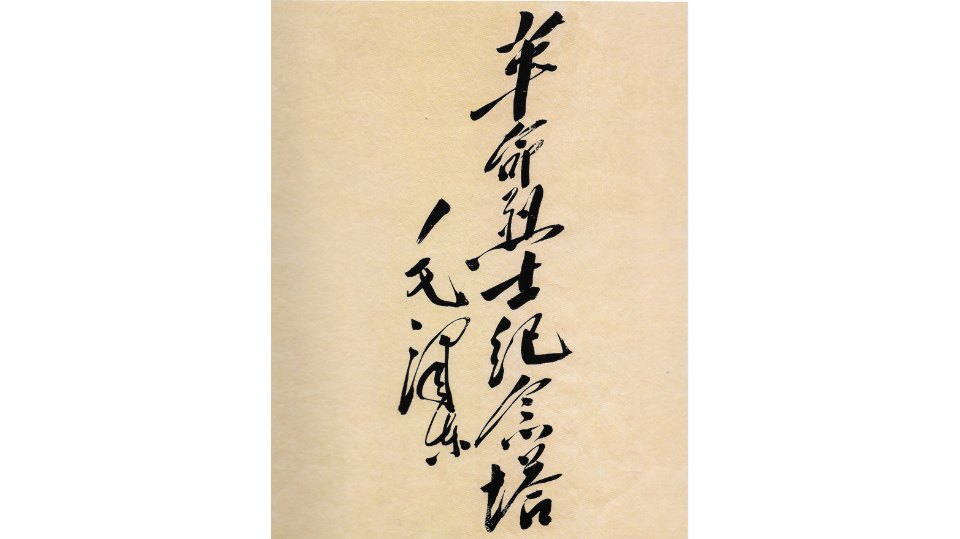 革命烈士纪念塔
毛泽东